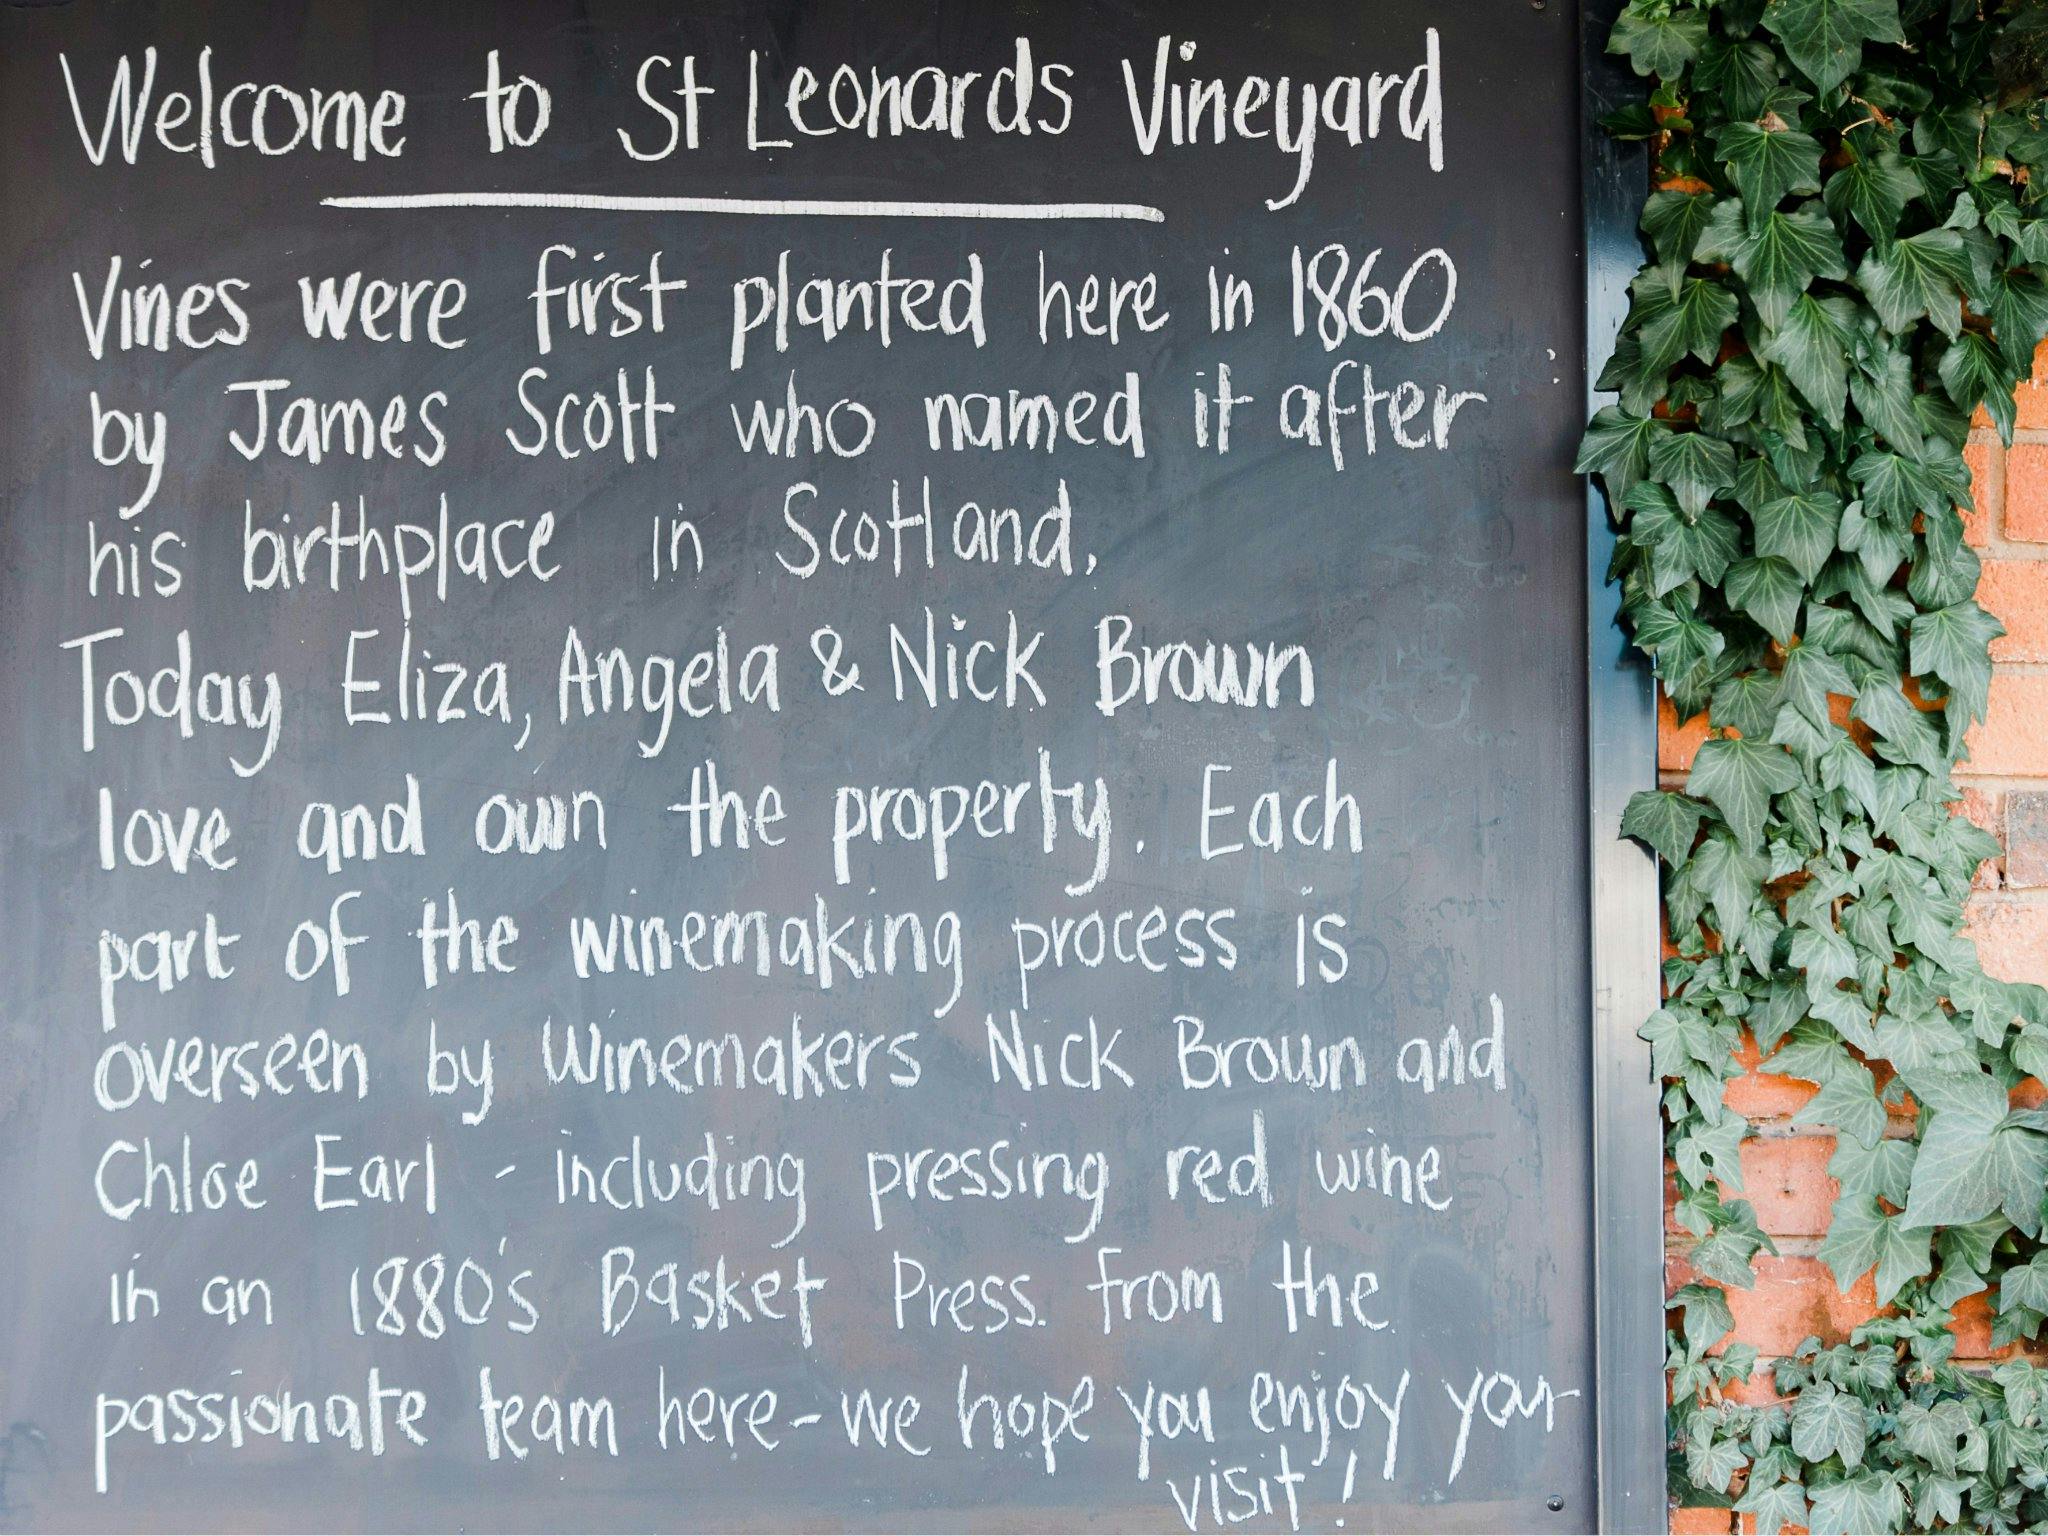 Welcome to St Leonards Vineyard
Vines were first planted here in 1860
by James Scott who named it after
his birthplace in Scotland.
Today Eliza, Angela & Nick Brown
love and own the property. Each
part of the winemaking process is
overseen by Winemakers Nick Brown and
Chloe Earl - including pressing red wine
in an 1880's Basket Press. From the
passionate team here - we hope you enjoy your
visit!